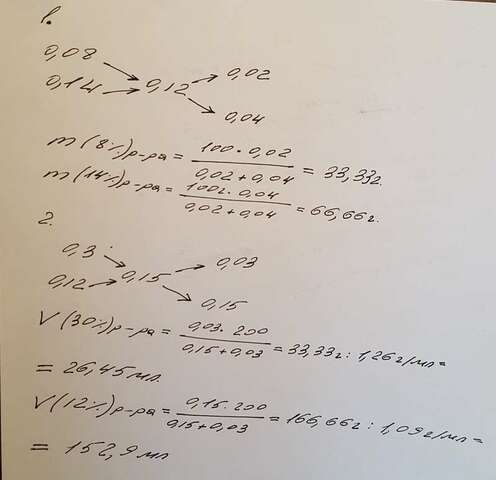 1.
0,08
0,14 → 0,12 → 0,02
0,04
m (8%)р-ра = 100 · 0,02 / 0,02 + 0,04 = 33,33г.
m (14%)р-ра = 100г · 0,04 / 0,02 + 0,04 = 66,66г.
2.
0,3
0,12 → 0,15 → 0,03
0,15
V (30%)р-ра = 0,03 · 200 / 0,15 + 0,03 = 33,33г : 1,26г/мл =
= 26,45 мл.
V (12%)р-ра = 0,15 · 200 / 0,15 + 0,03 = 166,66г : 1,09г/мл =
= 152,9 мл